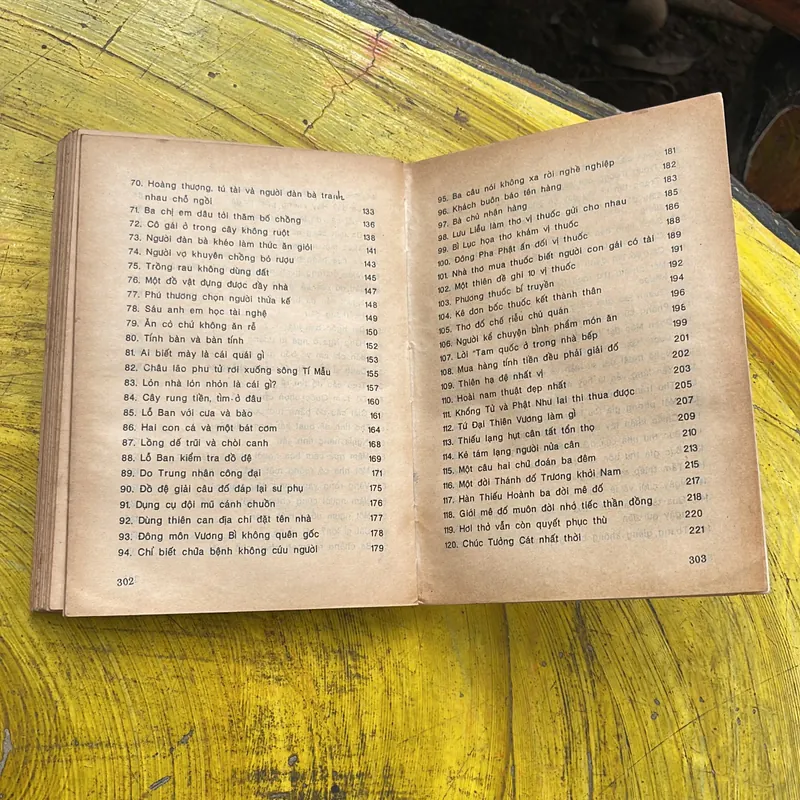 70. Hoàng thượng, tú tài và người đàn bà tranh
nhau chỗ ngồi 133
71. Ba chị em dâu tới thăm bố chồng 136
72. Cô gái ở trong cây không ruột 138
73. Người đàn bà khéo làm thức ăn giỏi 141
74. Người vợ khuyên chồng bỏ rượu 143
75. Trồng rau không dùng đất 145
76. Một đồ vật đựng được đầy nhà 147
77. Phú thương chọn người thừa kế 148
78. Sáu anh em học tài nghệ 149
79. Ăn có chứ không ăn rễ 150
80. Tính bàn và bàn tính 152
81. Ai biết mày là cái quái gì 153
82. Châu lão phu tử rơi xuống sông Tí Mẫu 155
83. Lớn nhà lớn nhỏn là cái gì? 157
84. Cây rung tiền, tìm ở đâu 160
85. Lỗ Ban với cưa và bào 161
86. Hai con cá và một bát cơm 164
87. Lồng dế trũi và chòi canh 168
88. Lỗ Ban kiểm tra đồ đệ 169
89. Do Trung nhân công đại 171
90. Đồ đệ giải câu đố đáp lại sư phụ 175
91. Dụng cụ đội mũ cánh chuồn 176
92. Dùng thiên can địa chi đặt tên nhà 177
93. Đông môn Vương Bì không quên gốc 178
94. Chỉ biết chữa bệnh không cứu người 179
302
95. Ba câu nói không xa rời nghề nghiệp 181
96. Khách buôn báo tên hàng 182
97. Bà chủ nhận hàng 183
98. Lưu Liễu làm thơ vị thuốc gửi cho nhau 185
99. Bì Lục họa thơ khảm vị thuốc 186
100. Đông Pha Phật ấn đối vị thuốc 188
101. Nhà thơ mua thuốc biết người con gái có tài 189
102. Một thiên đề ghi 10 vị thuốc 191
103. Phương thuốc bí truyền 192
104. Kê đơn bốc thuốc kết thành thân 194
105. Thơ đố chế riễu chủ quán 196
106. Người kể chuyện bình phẩm món ăn 195
107. Lời "Tam quốc ở trong nhà bếp 199
108. Mua hàng tính tiền đều phải giải đố 201
109. Thiên hạ đệ nhất vị 202
110. Hoài nam thuật đẹp nhất 203
111. Khổng Tử và Phật Như lai thi thua được 205
112. Tứ Đại Thiên Vương làm gì 207
113. Thiếu lạng hụt cân tất tổn thọ 209
114. Kẻ tám lạng người nửa cân 210
115. Một câu hai chữ đoán ba đêm 213
116. Một đời Thánh đố Trương khởi Nam 215
117. Hàn Thiếu Hoành ba đời mê đố 217
118. Giỏi mê đố muôn đời nhỏ tiếc thần đồng 218
119. Hơi thở vẫn còn quyết phục thù 220
120. Chúc Tưởng Cát nhất thời 221
303